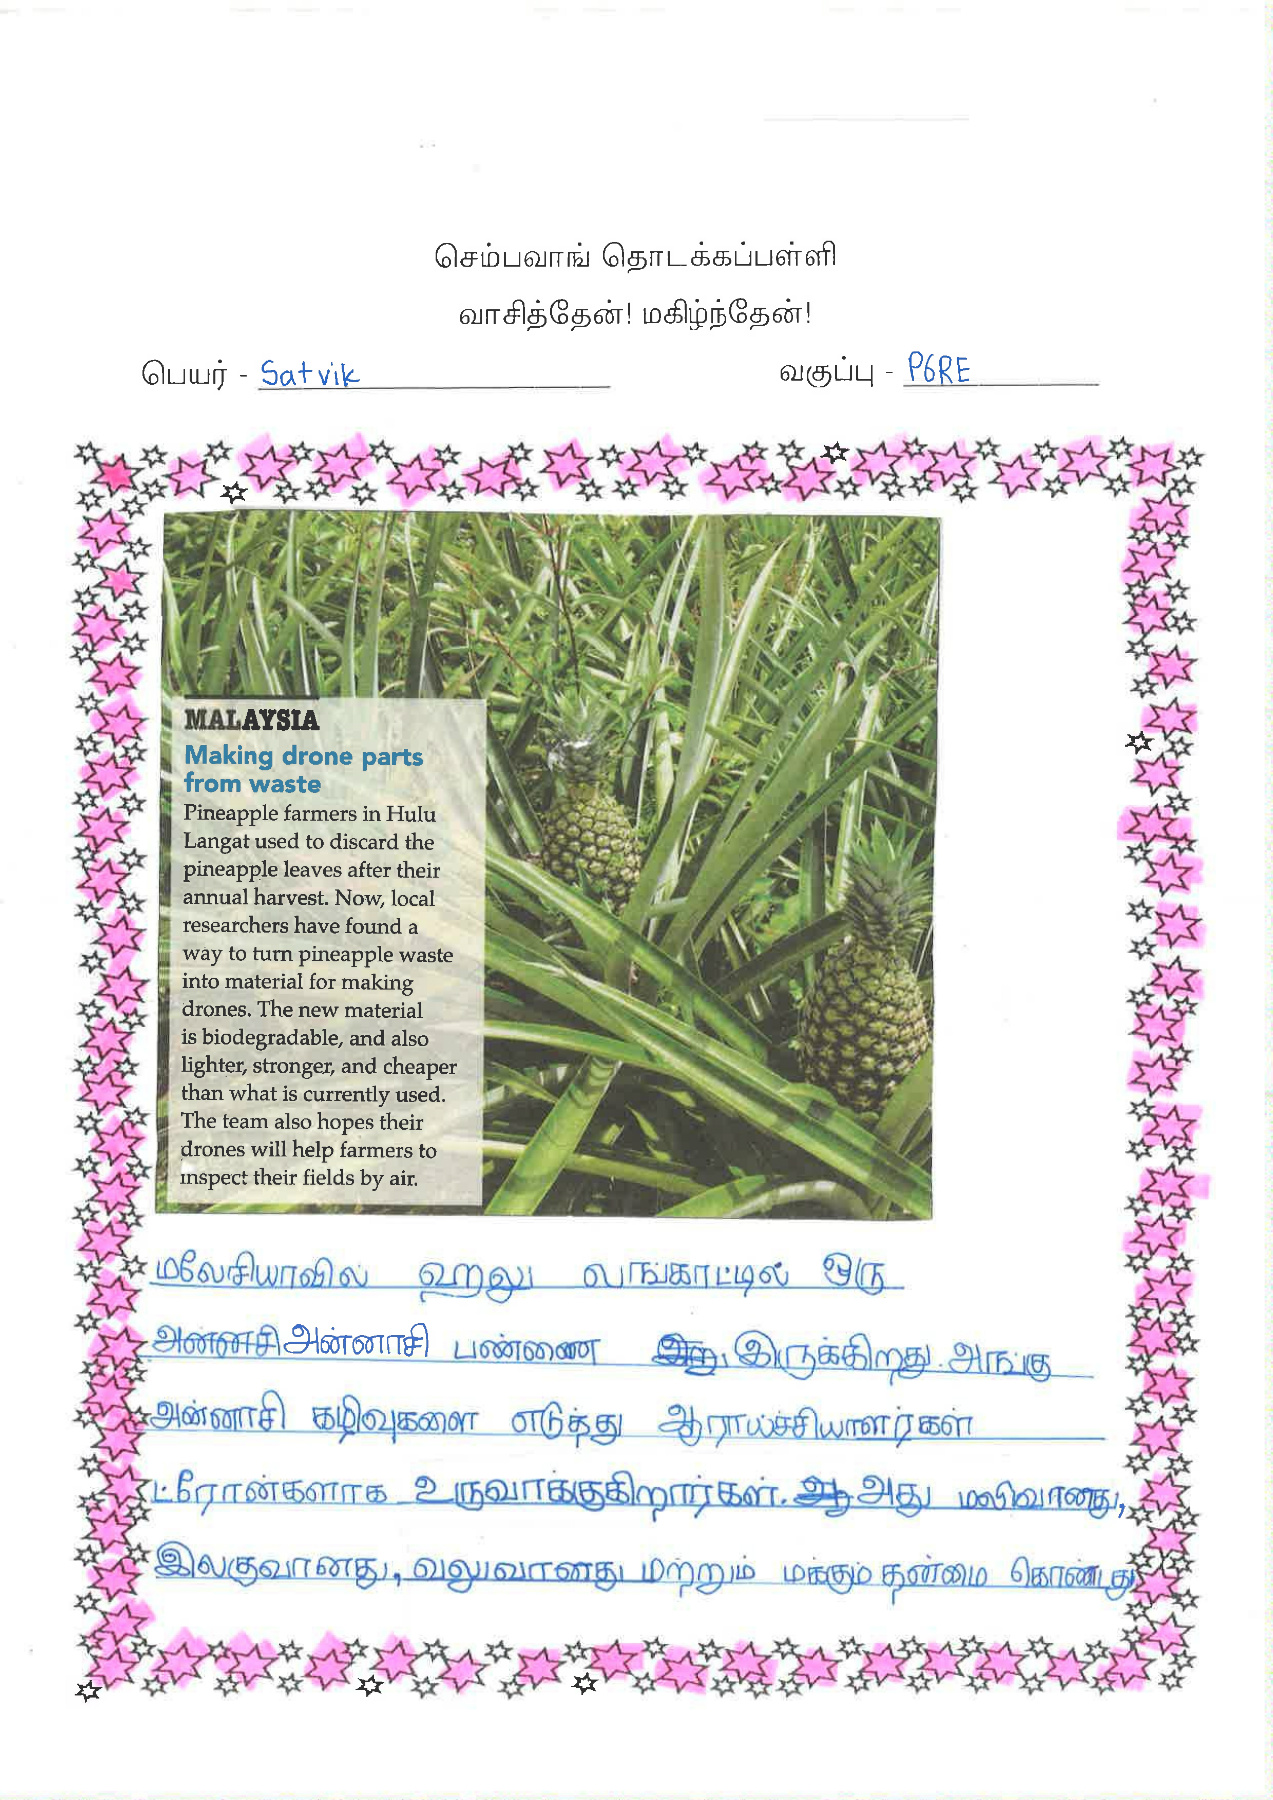 செம்பவாங் தொடக்கப்பள்ளி
வாசித்தேன்! மகிழ்ந்தேன்!
பெயர் - Satvik வகுப்பு - P6RE
MALAYSIA
Making drone parts
from waste
Pineapple farmers in Hulu
Langat used to discard the
pineapple leaves after their
annual harvest. Now, local
researchers have found a
way to turn pineapple waste
into material for making
drones. The new material
is biodegradable, and also
lighter, stronger, and cheaper
than what is currently used.
The team also hopes their
drones will help farmers to
inspect their fields by air.
மலேசியாவில் ஹுலு லாங்காட்டில் ஒரு
அன்னாசி பண்ணை இருக்கிறது. அங்கு
அன்னாசி கழிவுகளை எடுத்து ஆராய்ச்சியாளர்கள்
ட்ரோன்களாக உருவாக்குகிறார்கள். அது மலிவானது,
இலகுவானது, வலுவானது மற்றும் மக்கும் தன்மை கொண்டது